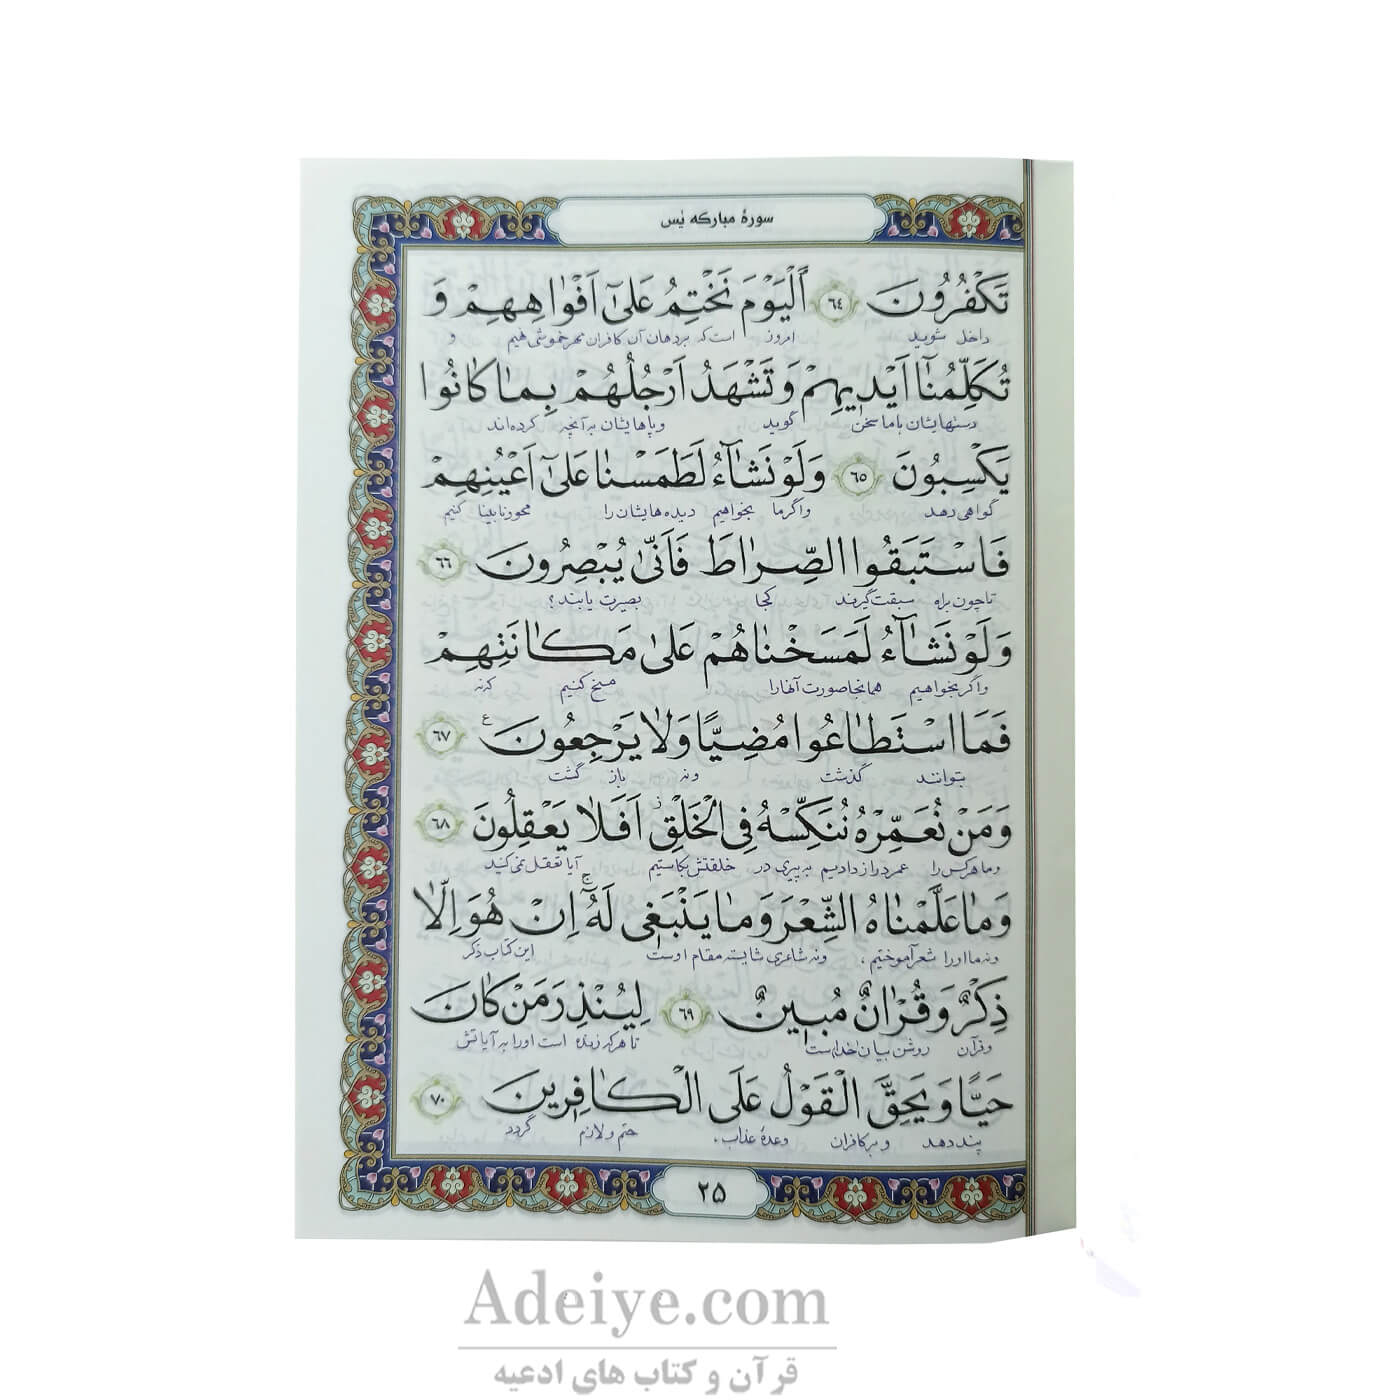 سورهٔ مبارکه یٰس
تَکْفُرُونَ ٦٤ اَلْیَوْمَ نَخْتِمُ عَلٰٓی اَفْوٰاهِهِمْ وَ
داخل شوید امروز است که بردهان آن کافران مهر خموشی نهیم و
تُکَلِّمُنٰٓا اَیْدیهِمْ وَ تَشْهَدُ اَرْجُلُهُمْ بِمٰا کٰانُوا
دستهایشان با ما سخن گوید و پاهایشان به آنچه کرده‌اند
یَکْسِبُونَ ٦٥ وَلَوْ نَشٰٓاءُ لَطَمَسْنٰا عَلٰٓی اَعْیُنِهِمْ
گواهی دهد واگر ما بخواهیم دیده هایشان را محو و نابینا کنیم
فَاسْتَبَقُوا الصِّرٰاطَ فَاَنّٰی یُبْصِرُونَ ٦٦
تا چون براه سبقت گیرند کجا بصیرت یابند؟
وَلَوْ نَشٰٓاءُ لَمَسَخْنٰاهُمْ عَلٰی مَکٰانَتِهِمْ
و اگر بخواهیم همانجا صورت آنها را مسخ کنیم که نه
فَمَا اسْتَطٰاعُوا مُضِیًّا وَلٰا یَرْجِعُونَ ع ٦٧
بتوانند گذشت و نه باز گشت
وَمَنْ نُعَمِّرْهُ نُنَکِّسْهُ فِی الْخَلْقِ ز اَفَلٰا یَعْقِلُونَ ٦٨
وما هرکس را عمر دراز دادیم به پیری در خلقتش بکاستیم آیا تعقل نمی کنید
وَمٰا عَلَّمْنٰاهُ الشِّعْرَ وَمٰا یَنْبَغی لَهُٓ ج اِنْ هُوَ اِلّٰا
ونه ما او را شعر آموختیم، ونه شاعری شایسته مقام اوست این کتاب ذکر
ذِکْرٌ وَ قُرْاٰنٌ مُبینٌ ٦٩ لِیُنْذِرَ مَنْ کٰانَ
وقرآن روشن بیان خداست تا هرکه زنده است او را به آیاتش
حَیًّا وَیَحِقَّ الْقَوْلُ عَلَی الْکٰافِرینَ ٧٠
پند دهد و بر کافران وعدهٔ عذاب، حتم و لازم گردد
۲۵
Adeiye.com
قرآن و کتاب های ادعیه